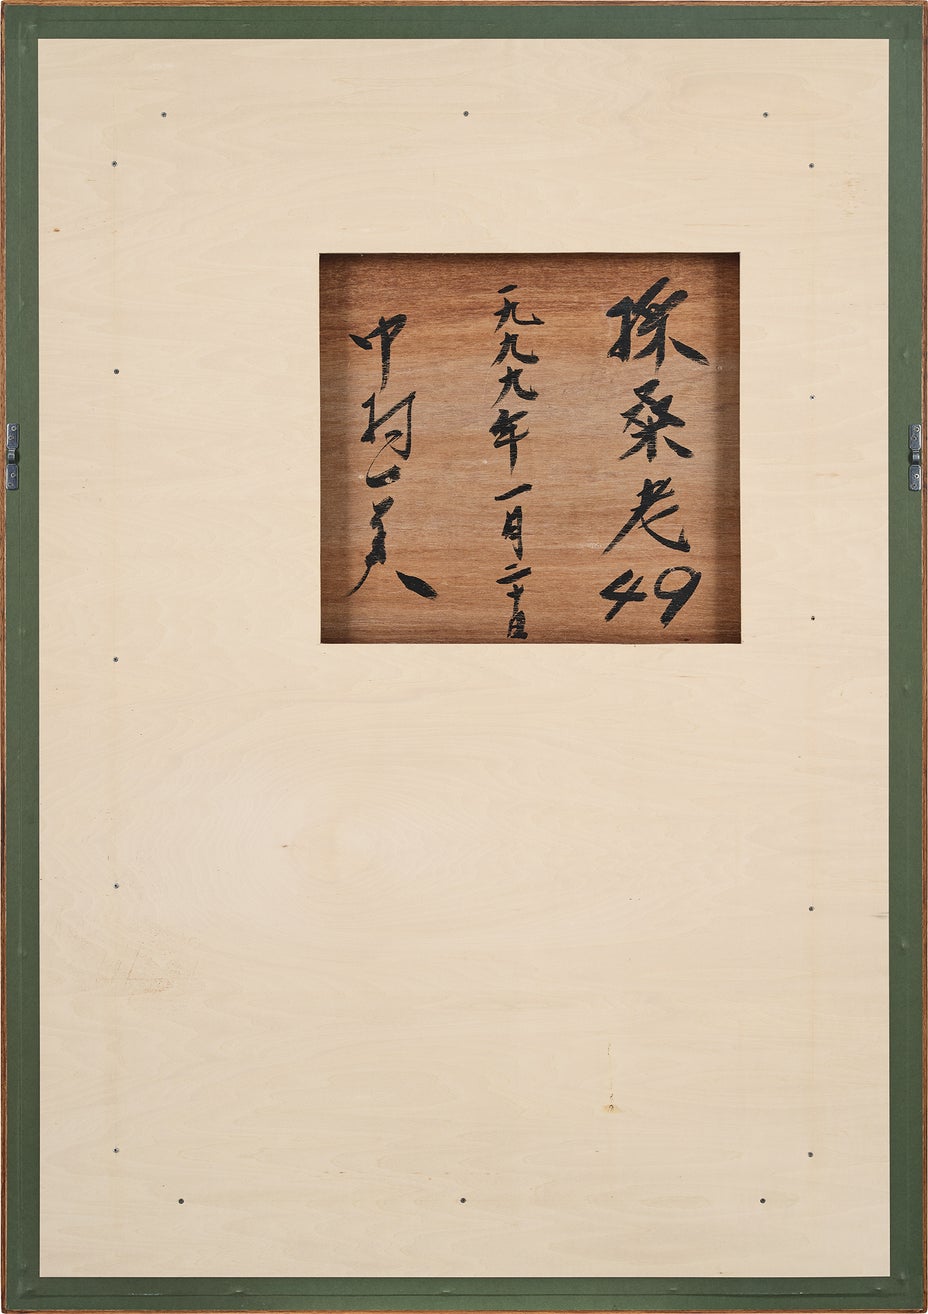 採桑老49
一九九九年一月二十日
中村一美